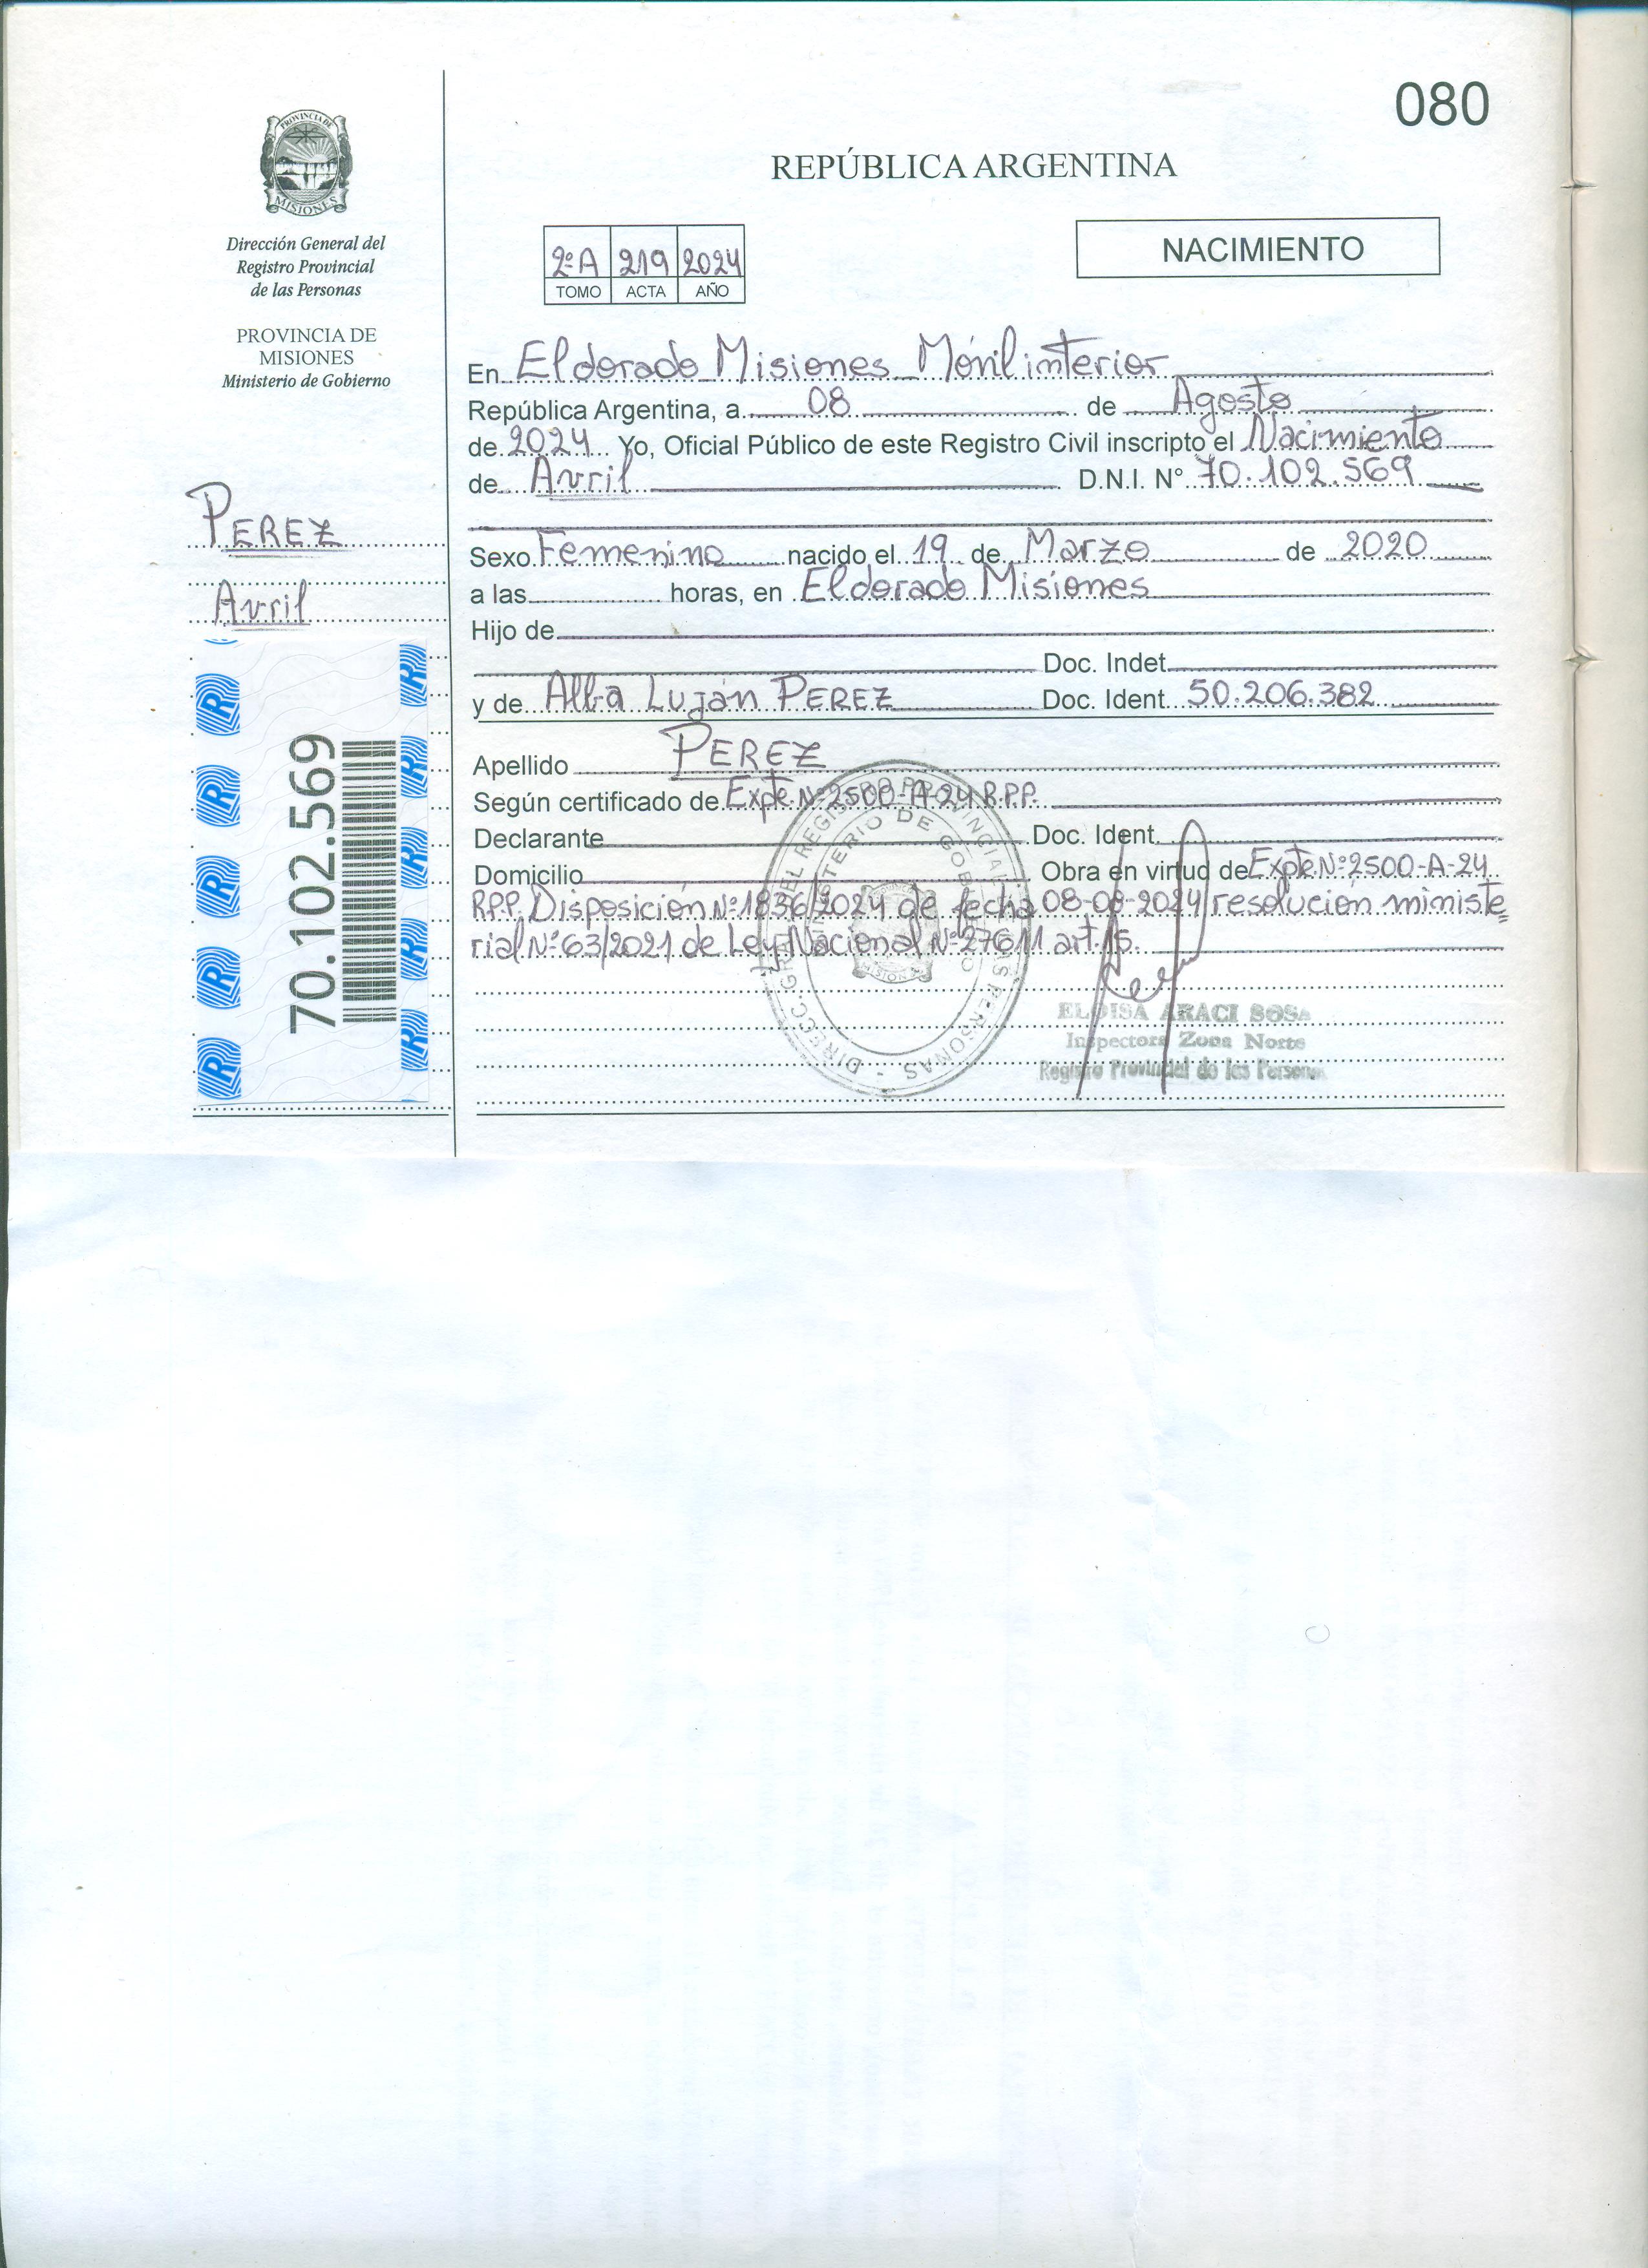 080
PROVINCIA DE
MISIONES
Dirección General del
Registro Provincial
de las Personas
PROVINCIA DE
MISIONES
Ministerio de Gobierno
PEREZ
Avril
70.102.569
REPÚBLICA ARGENTINA
2º A 219 2024
TOMO ACTA AÑO
NACIMIENTO
En Eldorado Misiones Móvil interior
República Argentina, a 08 de Agosto
de 2024 Yo, Oficial Público de este Registro Civil inscripto el Nacimiento
de Avril D.N.I. N° 70.102.569
Sexo Femenino nacido el 19 de Marzo de 2020
a las horas, en Eldorado Misiones
Hijo de
Doc. Indet.
y de Alba Luján PEREZ Doc. Ident. 50.206.382
Apellido PEREZ
Según certificado de Expte Nº 2500-A-24 R.P.P.
Declarante Doc. Ident.
Domicilio Obra en virtud de Expte Nº 2500-A-24
R.P.P. Disposición Nº 1836/2024 de fecha 08-08-2024 resolución ministe=
rial Nº 63/2021 de Ley Nacional Nº 27611 art. 15.
DIRECC. GRAL. DEL REGISTRO PROVINCIAL DE LAS PERSONAS -
MINISTERIO DE GOBIERNO
MISIONES
ELOISA ARACI SOSA
Inspectora Zona Norte
Registro Provincial de las Personas